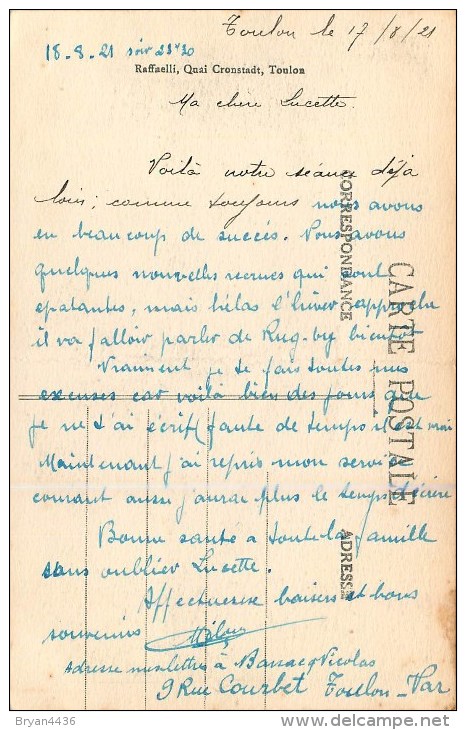 Toulon le 17/8/21
18-8-21 soir 23h30
Raffaelli, Quai Cronstadt, Toulon
Ma chère Lucette
Voilà notre séance déjà
loin; comme toujours nous avons
eu beaucoup de succès. Nous avons
quelques nouvelles recrues qui sont
épatantes, mais hélas l'hiver s'approche
il va falloir parler de Rug-by bientôt
Vraiment je te fais toutes mes
excuses car voilà bien des jours que
je ne t'ai écrit faute de temps il est vrai
Maintenant j'ai repris mon service
courant aussi j'aurai plus le temps d'écrire
Bonne santé à toute la famille
sans oublier Lucette.
Affectueux baisers et bons
souvenirs
Adresse mes lettres à Nicolas
9 Rue Courbet Toulon - Var
CORRESPONDANCE
CARTE POSTALE
ADRESSE
Bryan4436
delcampe.net